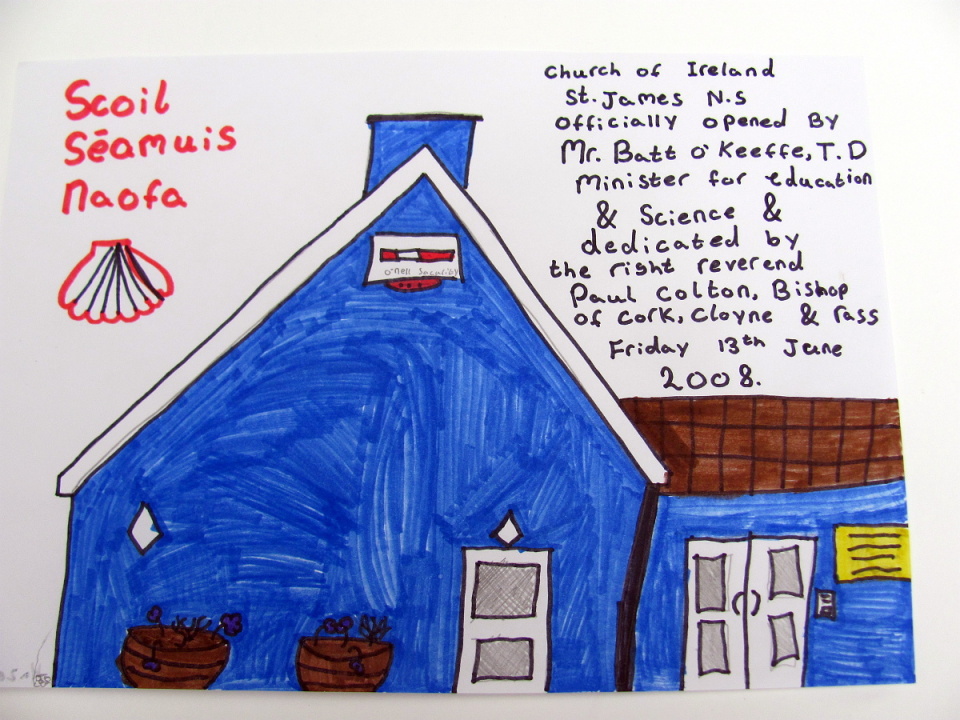 Scoil
Séamuis
Naofa
Church of Ireland
St. James N.S
officially opened By
Mr. Batt o'Keeffe, T.D
Minister for education
& Science &
dedicated by
the right reverend
Paul Colton, Bishop
of Cork, Cloyne & rass
Friday 13th June
2008.
o'neill Security